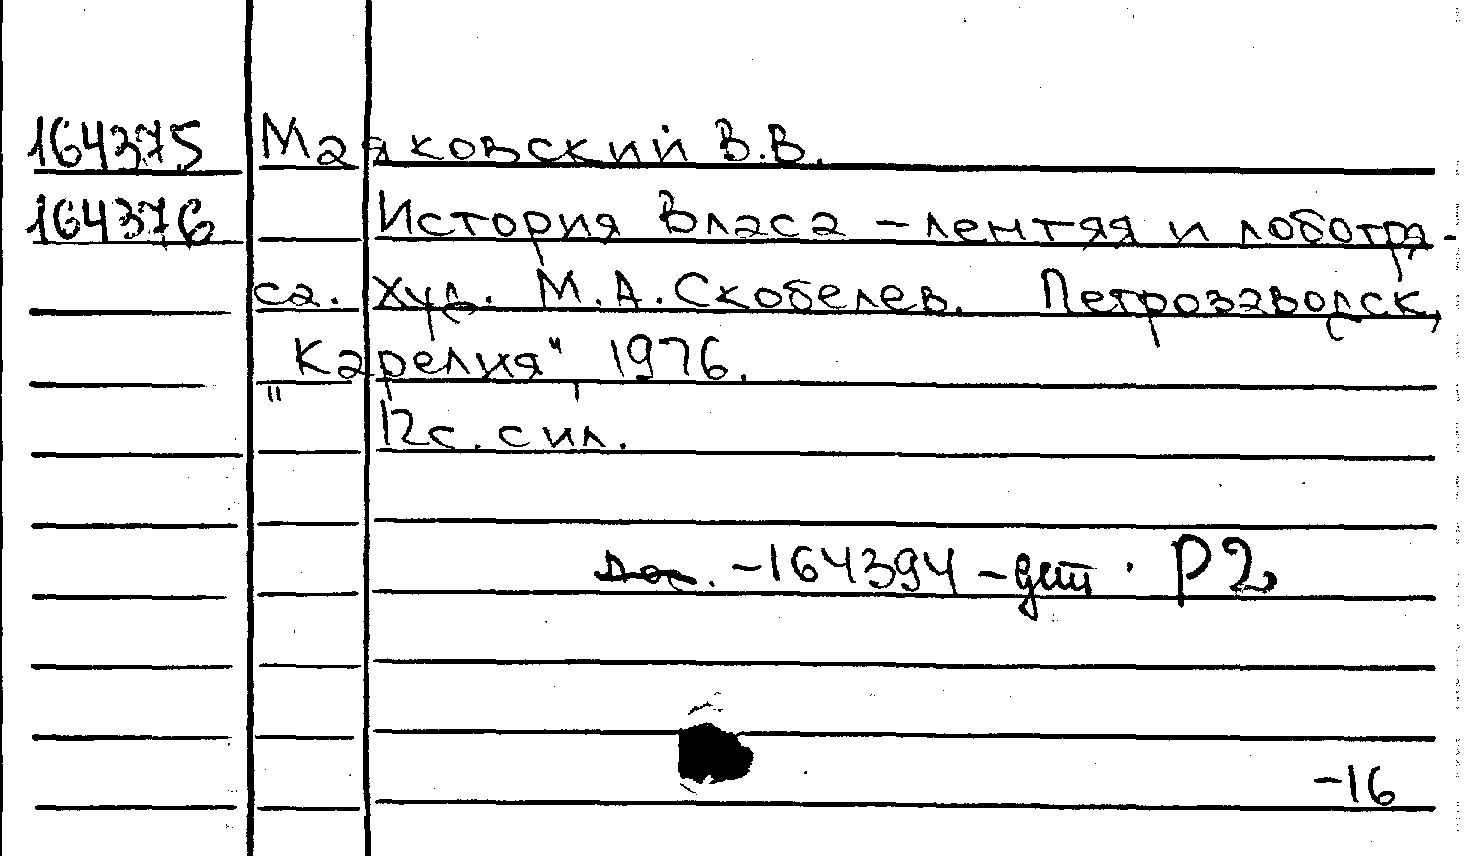 164375 Маяковский В.В.
164376 История Власа – лентяя и лоботря-
са. Худ. М.А.Скобелев. Петрозаводск,
„Карелия“, 1976.
12с. с ил.
-164394 - дет. Р2
-16